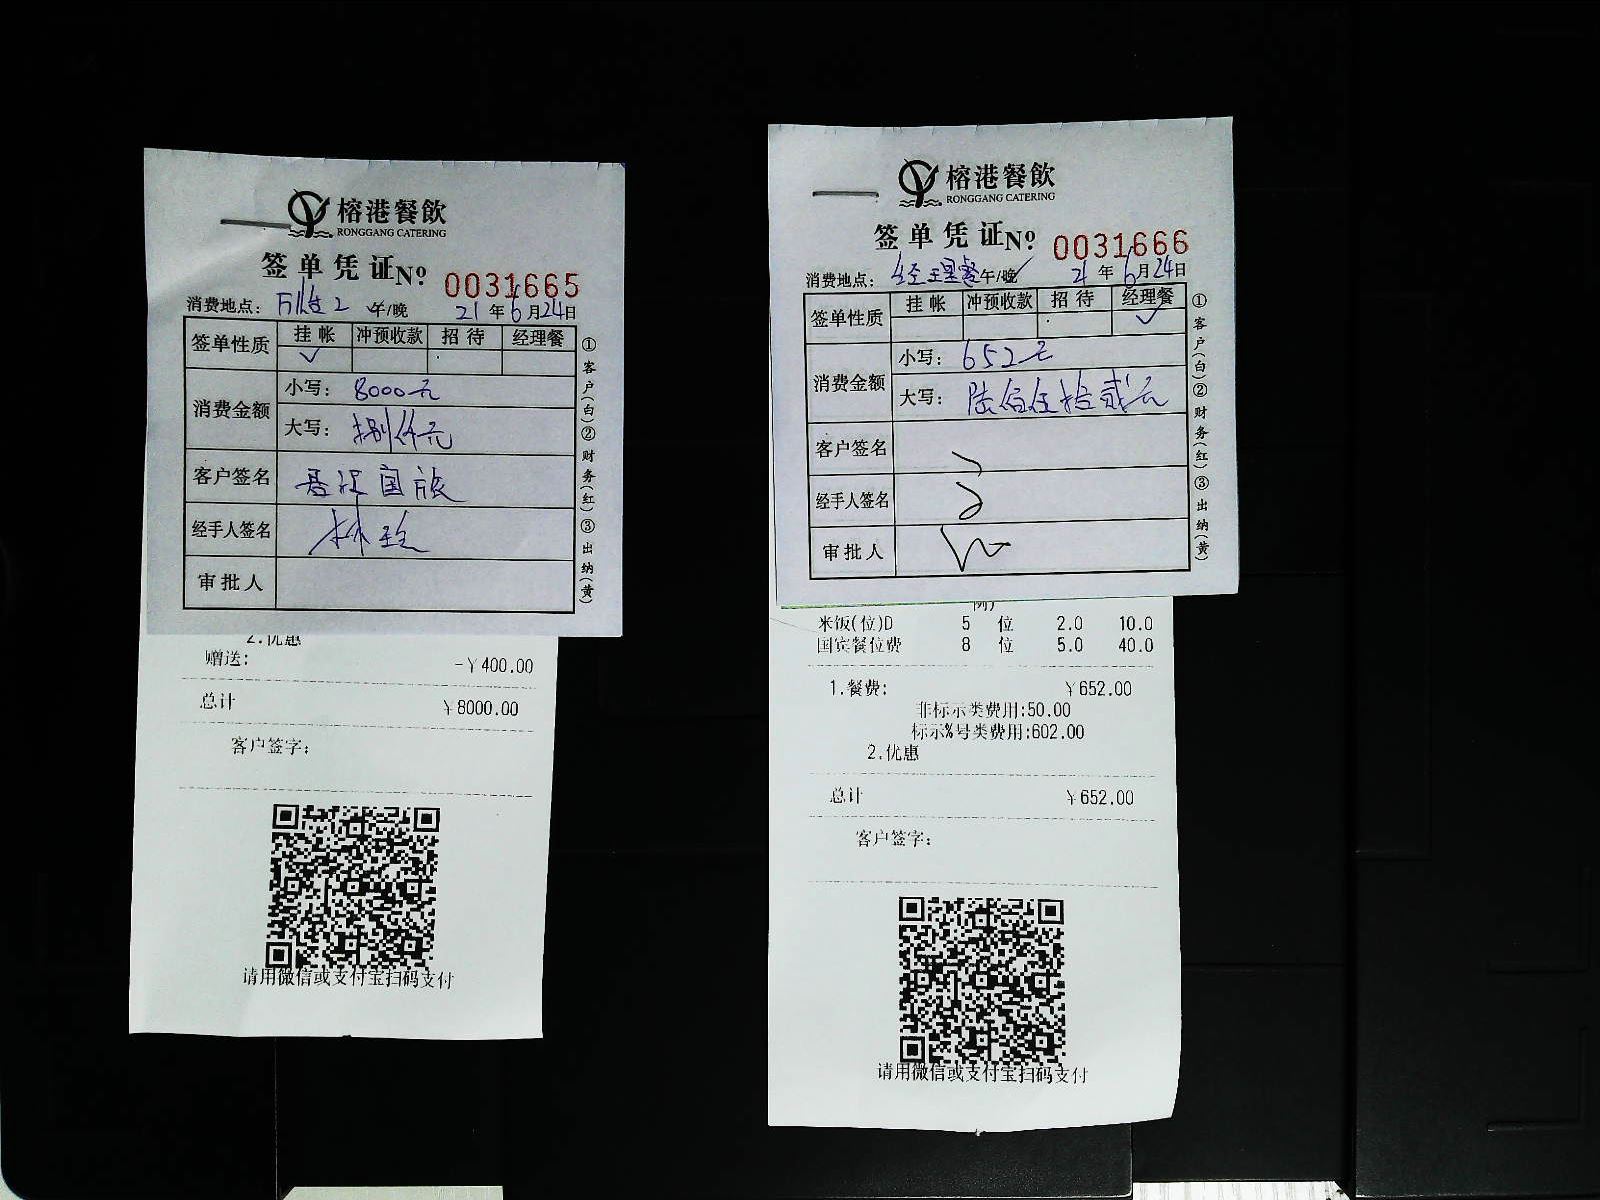 榕港餐飲
RONGGANG CATERING
签单凭证 Nº 0031665
消费地点： 2 午/晚 21年6月24日
签单性质 挂帐 冲预收款 招待 经理餐
✓
消费金额 小写：8000元
大写：捌仟元
客户签名 国旅
经手人签名 林
审批人
①客户(白)②财务(红)③出纳(黄)
2.优惠
赠送: -￥400.00
总计 ￥8000.00
客户签字:
请用微信或支付宝扫码支付
榕港餐飲
RONGGANG CATERING
签单凭证 Nº 0031666
消费地点：经理餐 午/晚✓ 21年6月24日
签单性质 挂帐 冲预收款 招待 经理餐
✓
消费金额 小写：652元
大写：陆佰伍拾贰元
客户签名
经手人签名
审批人
①客户(白)②财务(红)③出纳(黄)
例)
米饭(位)D 5 位 2.0 10.0
国宾餐位费 8 位 5.0 40.0
1.餐费: ￥652.00
非标示类费用:50.00
标示%号类费用:602.00
2.优惠
总计 ￥652.00
客户签字:
请用微信或支付宝扫码支付